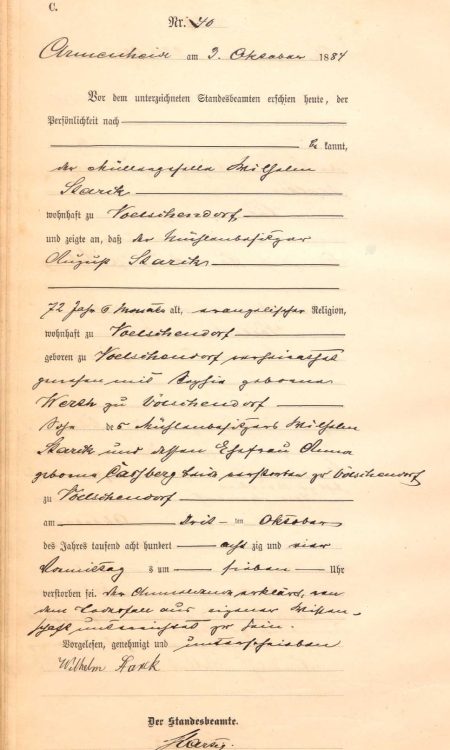 C.
Nr. 40
Armenheide am 3. Oktober 1884
Vor dem unterzeichneten Standesbeamten erschien heute, der
Persönlichkeit nach
be kannt,
der Müllergeselle Wilhelm
Starck
wohnhaft zu Voelschendorf
und zeigte an, daß der Mühlenbesitzer
August Starck
72 Jahr 6 Monate alt, evangelischer Religion,
wohnhaft zu Voelschendorf
geboren zu Voelschendorf verheirathet
gewesen mit Sophie geborene
Werth zu Völschendorf
Sohn des Mühlenbesitzers Wilhelm
Starck und dessen Ehefrau Anna
geborene beide verstorben zu Völschendorf
zu Voelschendorf
am Drit ten Oktober
des Jahres tausend acht hundert acht zig und vier
Vormittag s um sieben Uhr
verstorben sei. Der Anmeldende erklärt, von
dem Todesfall aus eigener Wissen-
schaft unterrichtet zu sein.
Vorgelesen, genehmigt und unterschrieben
Wilhelm Stark
Der Standesbeamte.